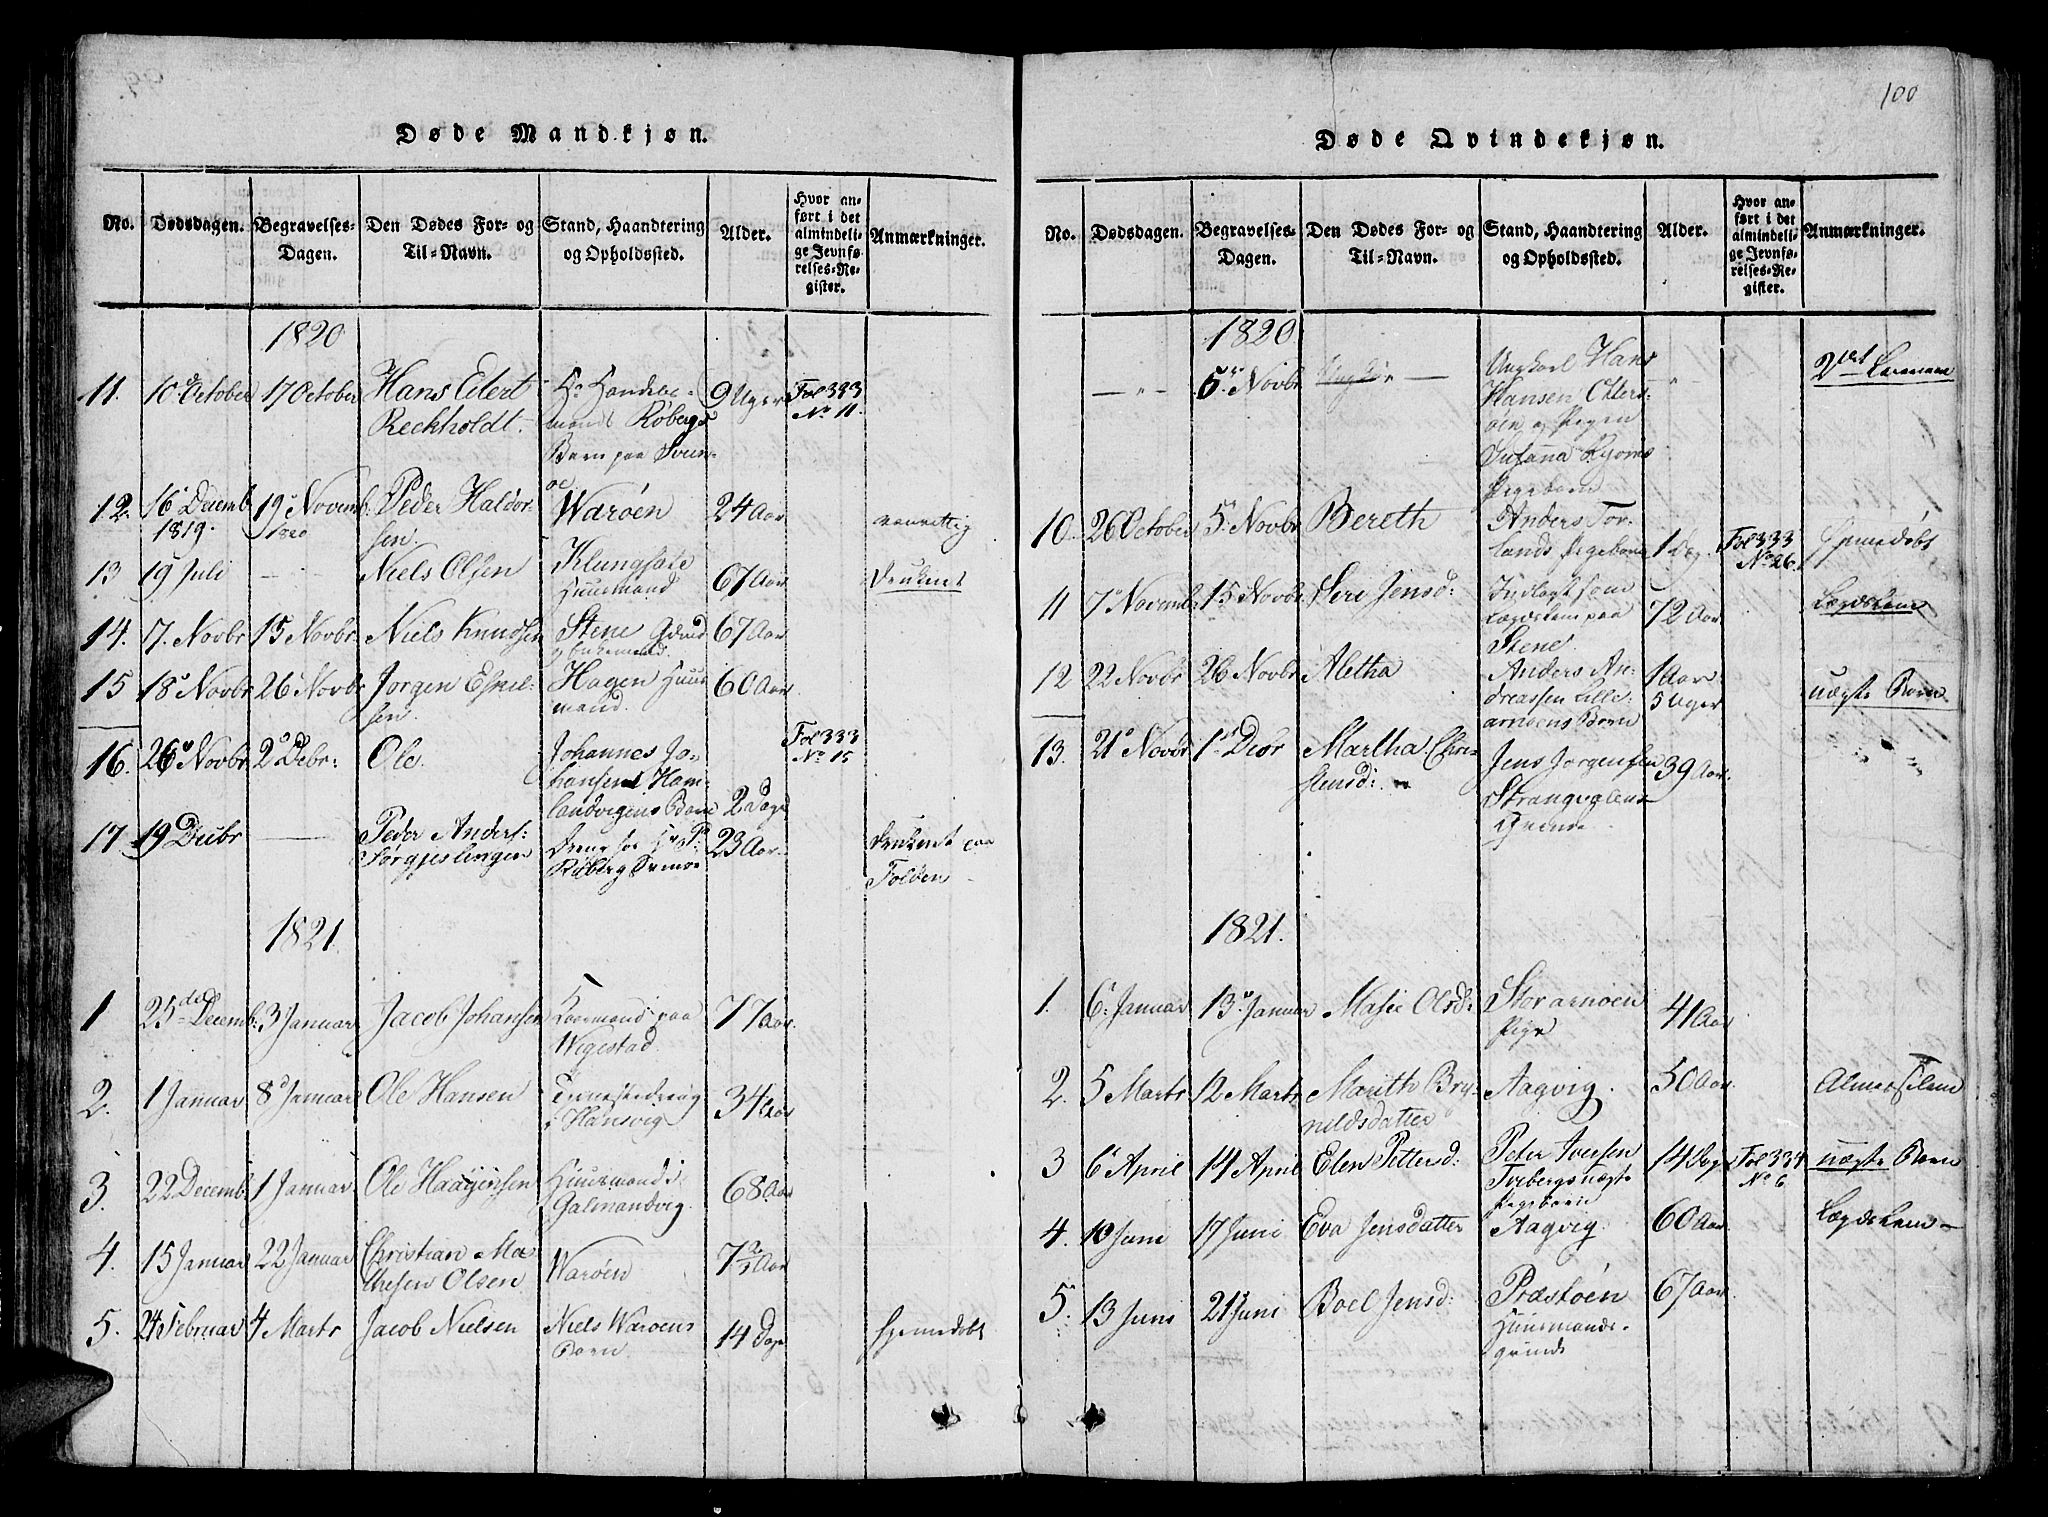 Døde Mandkjøn.
No.
Dødsdagen.
Begravelses-
Dagen.
Den Dødes For- og
Til-Navn.
Stand, Haandtering
og Opholdssted.
Alder.
Hvor an-
ført i det
almindeli-
ge Jevnfø-
relses-Re-
gister.
Anmærkninger.
1820
11. 10 October 17 October Hans Edert 9 Uger Fol 333
Reckholdt. Røbergs No 11.
Barn paa
12. 16 Decemb 19 Novemb: Peder Haldor- Warøen 24 Aar vanvittig
1819. 1820 sen.
13 19 Juli — Niels Olsen Huusmand 67 Aar Druknet
14. 7. Novbr 15 Novbr Niels Knudsen Stene 67 Aar
15 18 Novbr 26 Novbr Jørgen Esnel- Hagen Huus 60 Aar
sen. mand.
16. 26 Novbr 2 Debr: Ole Johannes Jo- Fol 333
hansen Ham- No 15
landvigens Barn 2 Dage
17 19 Decbr — Peder Anders: 23 Aar. Druknet paa
Sørgjeslingen Folden
1821.
1 25de Decemb: 3 Januar Jacob Johansen paa 77 Aar.
Wigestad.
2. 1 Januar 8 Januar Ole Hansen 34 Aar
i Hansvig
3. 22 Decemb 1 Januar Ole Haagensen Huusmand i 68 Aar
Galmandvig.
4. 15 Januar 22 Januar Christian Ma Warøen Aar
thesen Olsen
5. 24 Februar 4 Marts Jacob Nielsen Niels Warøens 14 Dage hjemedøbt
Barn
100
Døde Qvindekjøn.
No.
Dødsdagen.
Begravelses-
Dagen.
Den Dødes For- og
Til-Navn.
Stand, Haandtering
og Opholdssted.
Alder.
Hvor an-
ført i det
almindeli-
ge Jevnfø-
relses-Re-
gister.
Anmærkninger.
1820
— 5 Novbr — Ungkarl Hans
Hansen Otters-
øen og Pigen
Susana
Pigebarn
10. 26 October 5 Novbr Bereth Anders Tor- Fol 333 hjemedøbt
lands Pigebarn 1 Dag No 26.
11 7 Novemb 15 Novbr Siri Jensd: Indlagt som 72 Aar Lægdslem
Lægdslem paa
Stene.
12 22 Novbr 26 Novbr Aletha Anders An- 1 Aar uægte Barn
dreassen Lille- 5 Uger
arnøens Barn
13. 21 Novbr 1 Debr Martha Chri- Jens Jørgensen 39 Aar.
stensd:
1821.
1. 6 Januar 13 Januar Masie Olsd: Storarnøen 41 Aar
Pige
2. 5 Marts 12 Marts Marith Bry- Aagvig. 50 Aar. Almisselem
nildsdatter
3 6 April 14 April Elen Petersd: Peter Iversen 14 Dage Fol 334 uægte Barn
uægte No 6.
Pigebarn
4. 10 Juni 17 Juni Eva Jensdatter Aagvig. 60 Aar Lægdslem
5. 13 Juni 21 Juni Boel Jensd: Præstøen 67 Aar
Huusmands-
qvinde